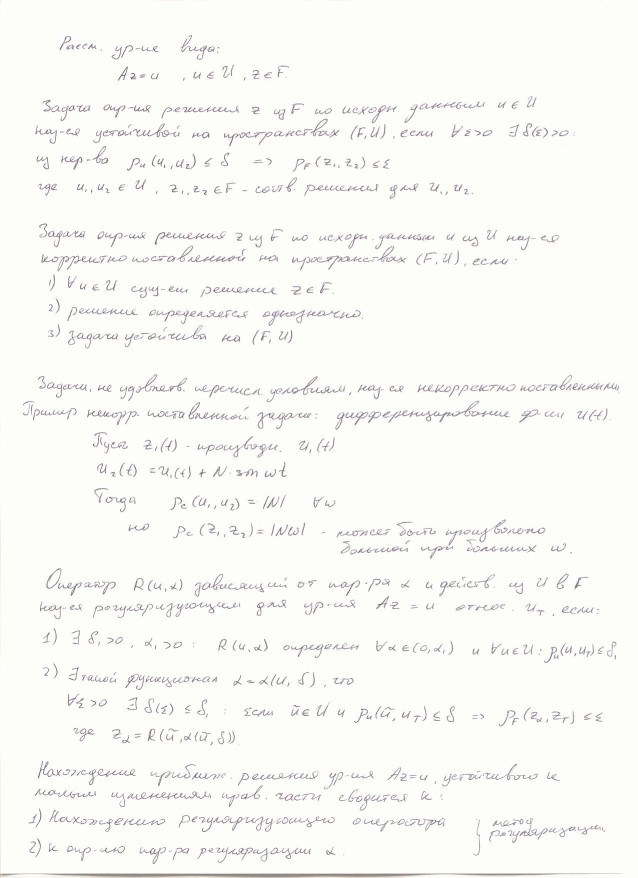 Рассм. ур-ие вида:
Az=u , u∈U , z∈F.
Задача опр-ия решения z из F по исходн. данным u∈U
наз-ся устойчивой на пространствах (F,U), если ∀ε>0 ∃δ(ε)>0:
из нер-ва ρᵤ(u₁,u₂)≤δ => ρ_F(z₁,z₂)≤ε
где u₁,u₂∈U, z₁,z₂∈F - соотв. решения для u₁,u₂.
Задача опр-ия решения z из F по исходн. данным u из U наз-ся
корректно поставленной на пространствах (F,U), если:
1) ∀u∈U сущ-ет решение z∈F.
2) решение определяется однозначно.
3) задача устойчива на (F,U)
Задачи, не удовлетв. перечисл. условиям, наз-ся некорректно поставленными.
Пример некорр. поставленной задачи: дифференцирование ф-ии U(t).
Пусть z₁(t) - производн. u₁(t)
u₂(t) = u₁(t) + N·sin ωt
Тогда ρ_C(u₁,u₂) = |N| ∀ω
но ρ_C(z₁,z₂) = |Nω| - может быть произвольно
большой при больших ω.
Оператор R(u,α) зависящий от пар-ра α и действ. из U в F
наз-ся регуляризующим для ур-ия Az=u относ. u_T, если:
1) ∃δ₁>0, α₁>0: R(u,α) определен ∀α∈(0,α₁) и ∀u∈U: ρᵤ(u,u_T)≤δ₁
2) ∃ такой функционал α=α(u,δ), что
∀ε>0 ∃δ(ε)≤δ₁: если ũ∈U и ρᵤ(ũ,u_T)≤δ => ρ_F(z_α,z_T)≤ε
где z_α = R(ũ,α(ũ,δ)).
Нахождение приближ. решения ур-ия Az=u, устойчивого к
малым изменениям прав. части сводится к:
1) Нахождению регуляризующего оператора
2) к опр-лю пар-ра регуляризации α.
} метод
регуляризации